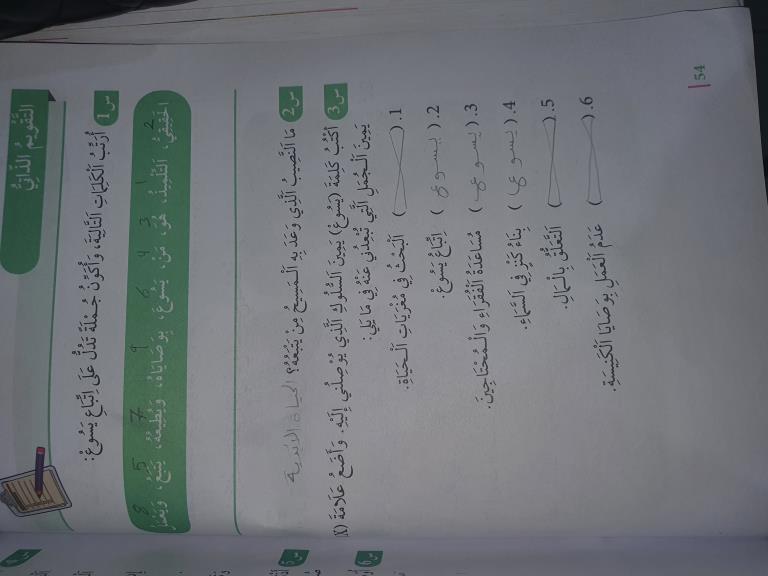 التَّقْوِيمُ الذَّاتِيُّ
س1 أُرَتِّبُ الْكَلِمَاتِ التَّالِيَةَ، وَأُكَوِّنُ جُمْلَةً تَدُلُّ عَلَى اتِّبَاعِ يَسُوعَ:
2 1 3 4 6 9 7 5 8
الْحَقِيقِيُّ، التِّلْمِيذُ، هُوَ، مَنْ، يَسُوعَ، بِوَصَايَاهُ، وَيُطِيعُهُ، يَتْبَعُ، وَيَعْمَلُ
س2 مَا النَّصِيبُ الَّذِي وَعَدَ بِهِ الْمَسِيحُ مِنْ يَتْبَعُهُ؟ الحياة الابدية
س3 أَكْتُبُ كَلِمَةَ (يَسُوع) يَمِينَ السُّلُوكِ الَّذِي يُوصِلُنِي إِلَيْهِ. وَأَضَعُ عَلَامَةَ (X)
يَمِينَ الْجُمَلِ الَّتِي تُبْعِدُنِي عَنْهُ فِي مَا يَلِي:
1. (X) الْبَحْثُ فِي مُغْرِيَاتِ الْحَيَاةِ.
2. (يسوع) اتِّبَاعُ يَسُوعَ.
3. (يسوع) مُسَاعَدَةُ الْفُقَرَاءِ وَالْمُحْتَاجِينَ.
4. (يسوع) بِنَاءُ كَنْزٍ فِي السَّمَاءِ.
5. (X) التَّعَلُّقُ بِالْمَالِ.
6. (X) عَدَمُ الْعَمَلِ بِوَصَايَا الْكَنِيسَةِ.
54